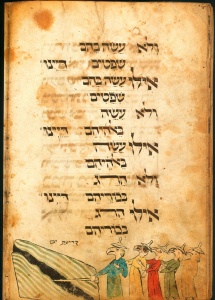 ולא עשה בהם
שפטים דיינו
אילו עשה בהם
שפטים
ולא עשה
באלהיהם דיינו
אילו עשה
באלהיהם
ולא הרג
בכוריהם דיינו
אילו הרג
בכוריהם